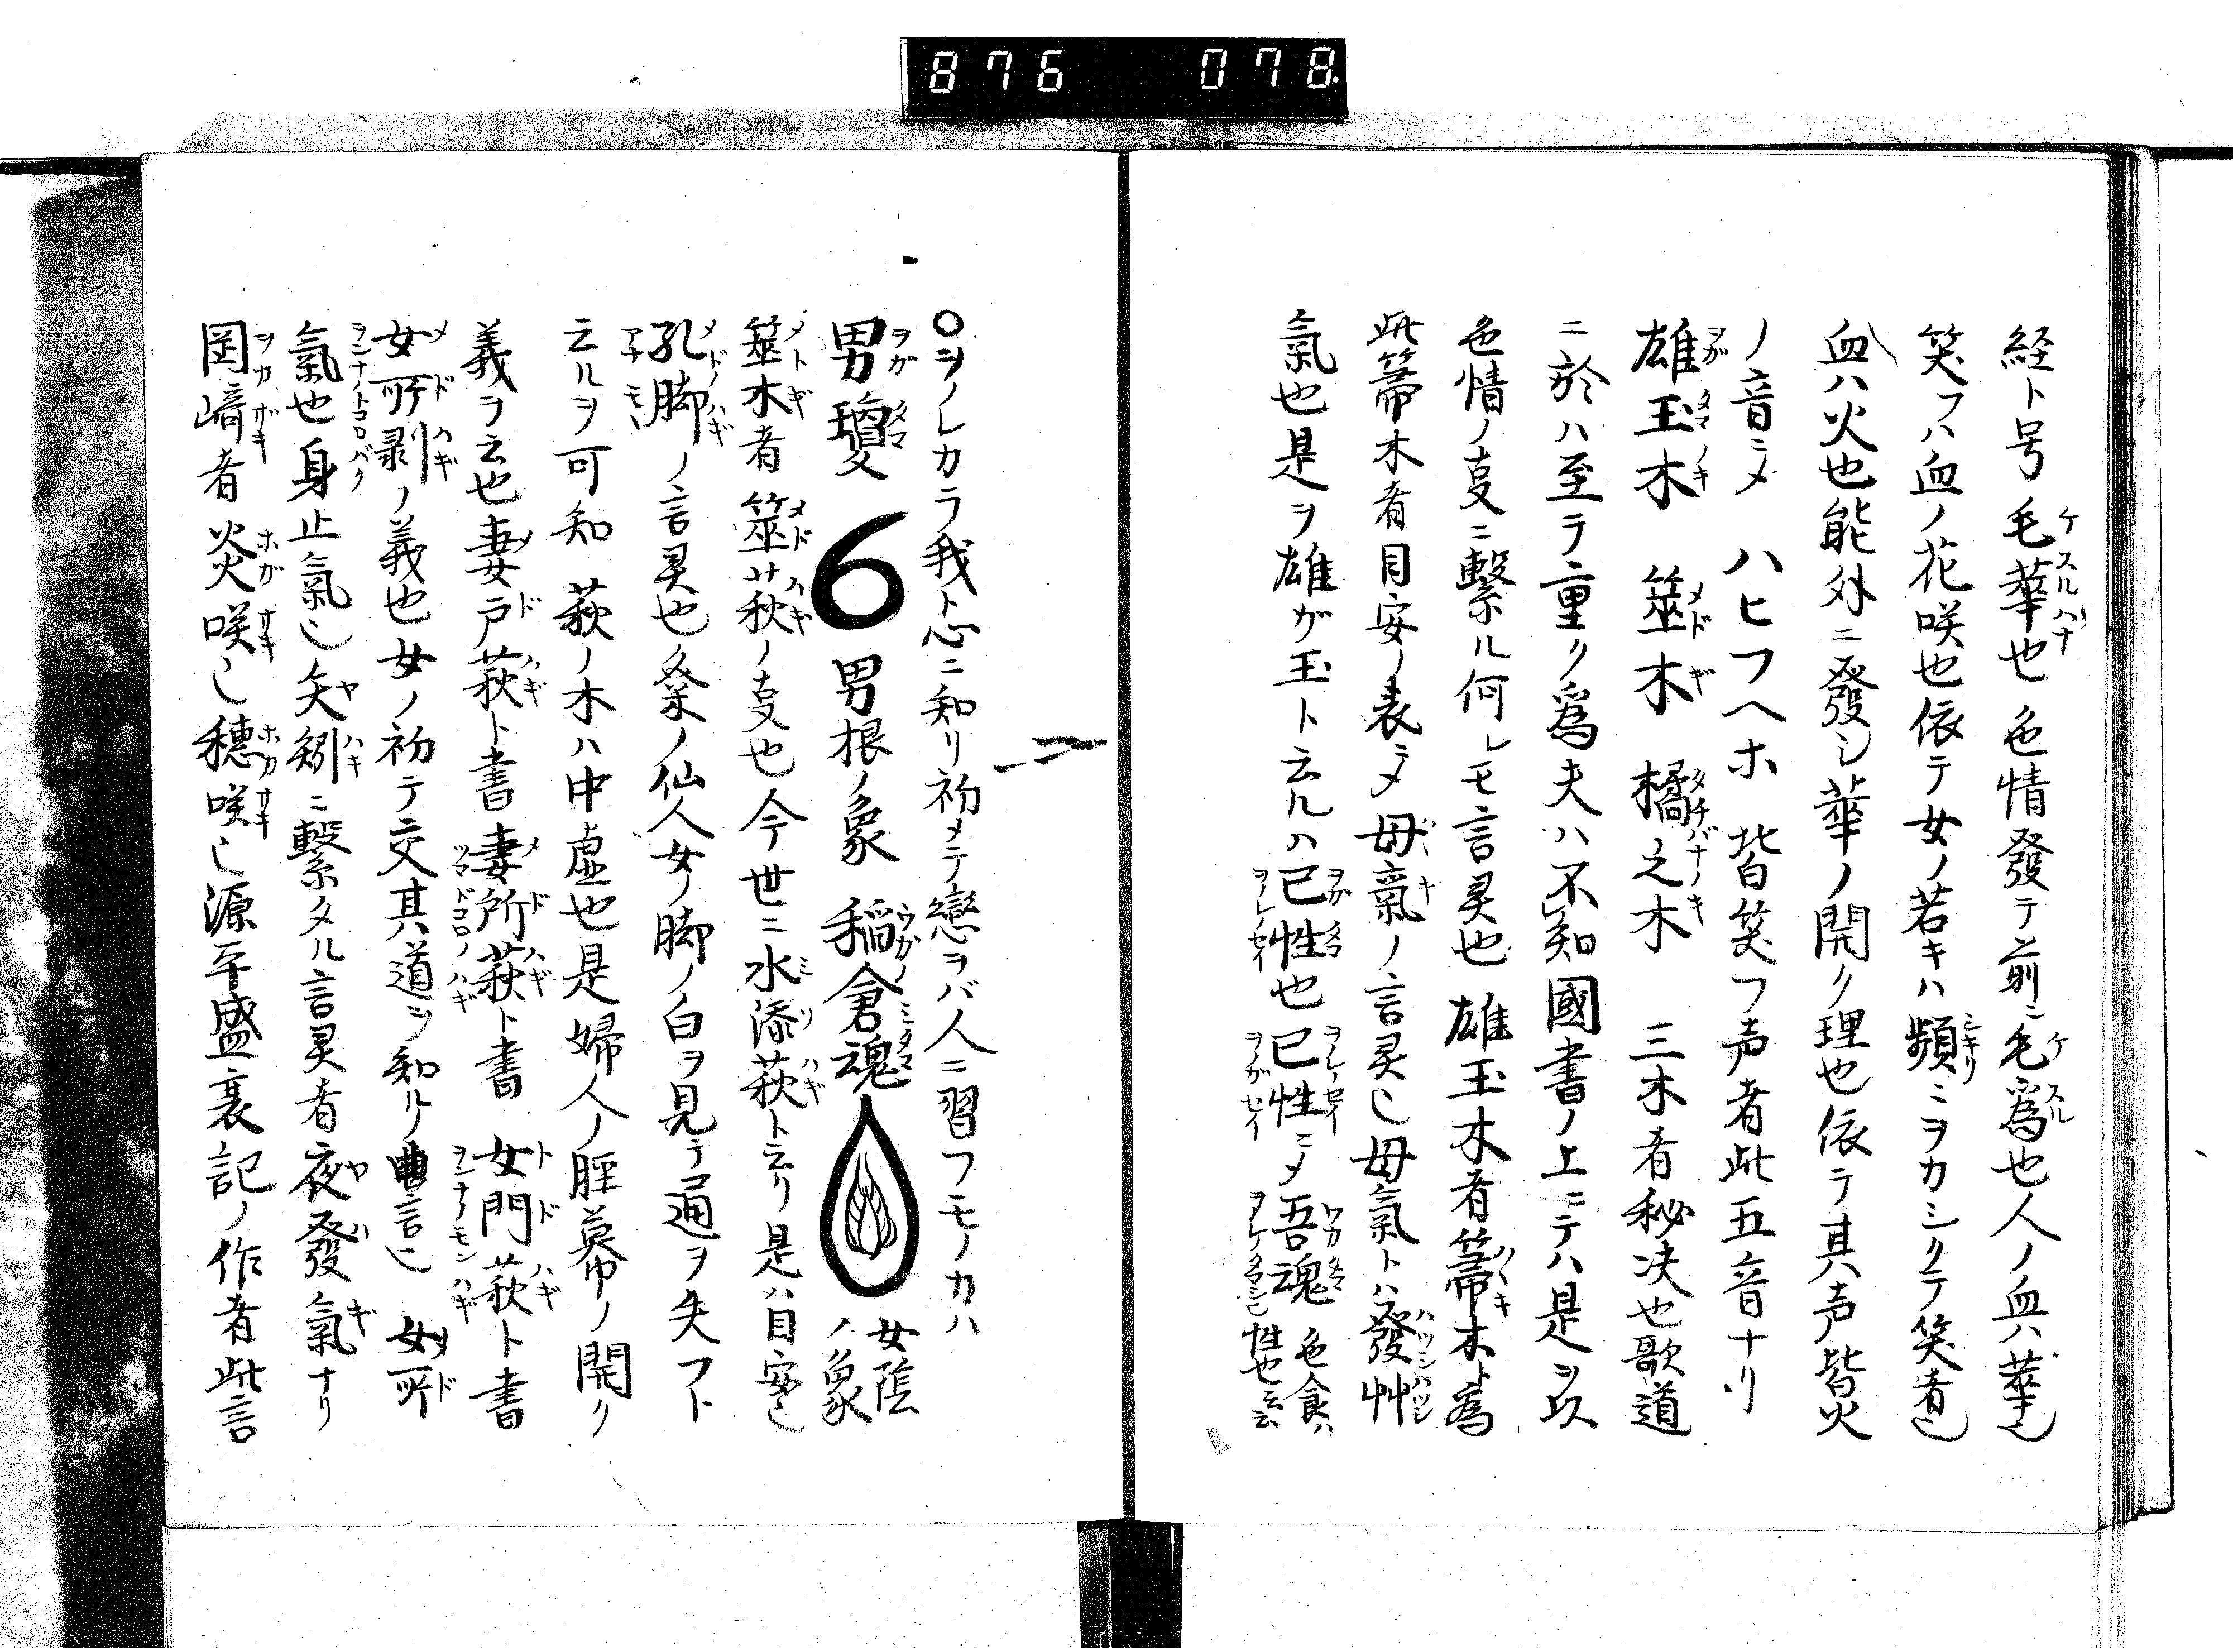 876 078
経ト号毛華也色情發テ前ニ毛爲也人ノ血ハ華也
笑フハ血ノ花咲也依テ女ノ若キハ頻ニヲカシクテ笑者也
血ハ火也能外ニ發シ華ノ開ク理也依テ其声皆火
ノ音ニメ ハヒフヘホ 皆笑フ声者此五音ナリ
雄玉木 筮木 橘之木 三木者秘决也歌道
ニ於ハ至テ重ク爲夫ハ不知國書ノ上ニテハ是ヲ以
色情ノ叓ニ繋ル何レモ言灵也雄玉木者箒木ト爲
此箒木者目安ノ表ニメ母氣ノ言灵也母氣トハ發艸
氣也是ヲ雄ガ玉ト云ルハ己性也己性ニメ吾魂色食ハ性也云云
〇ヲノレカラ我ト心ニ知リ初メテ戀ヲバ人ニ習フモノカハ
男瓊 6 男根ノ象 稲倉魂 女陰ノ象
筮木者筮萩ノ叓也今世ニ水添萩ト云リ是ハ目安也
孔脚ノ言灵也桑ノ仙人女ノ脚ノ白ヲ見テ通ヲ失フト
云ルヲ可知萩ノ木ハ中虚也是婦人ノ脛幕ノ開ク
義ヲ云也妻戸萩ト書妻所萩ト書 女門萩ト書
女所剥ノ義也女ノ初テ交其道ヲ知ル曹言也 女所
氣也身止氣也矢矧ニ繋タル言灵者夜發氣ナリ
岡﨑者炎咲也穗咲也源平盛衰記ノ作者此言